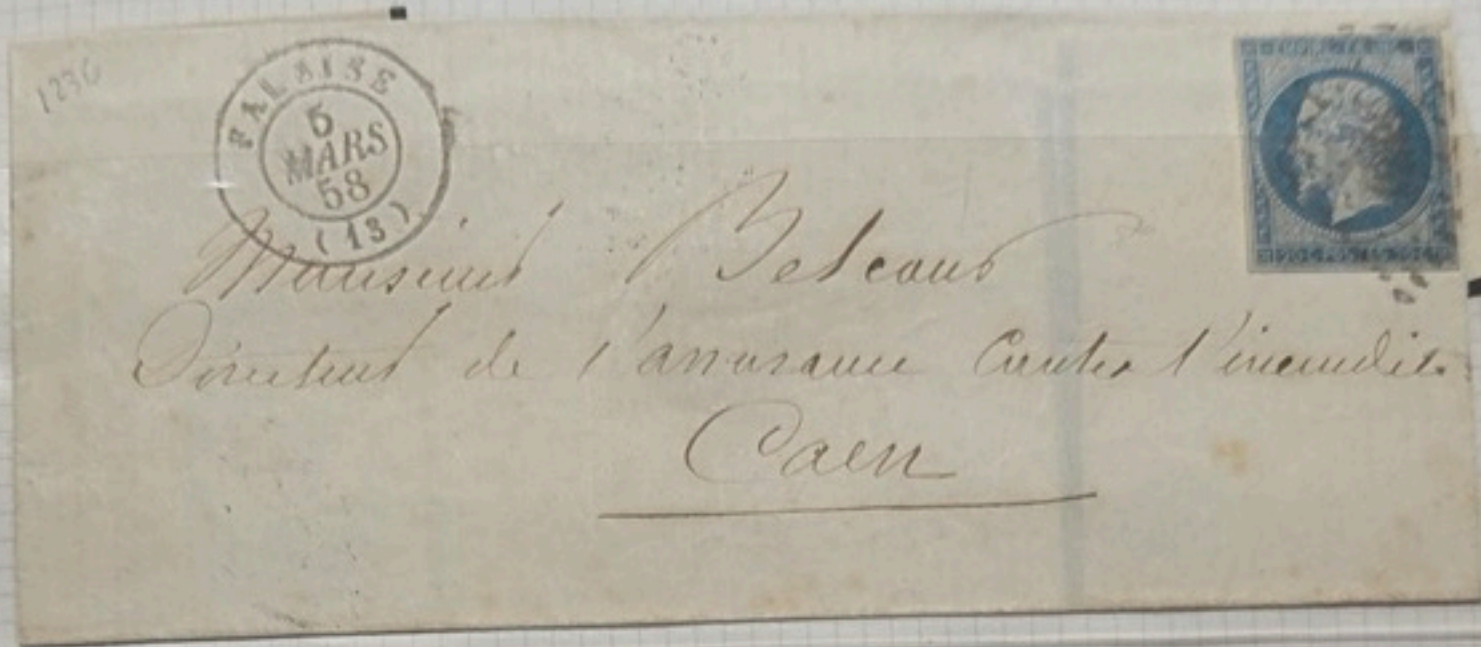 1236
FALAISE
5
MARS
58
(13)
Monsieur
Directeur de l'assurance Contre l'incendie
Caen